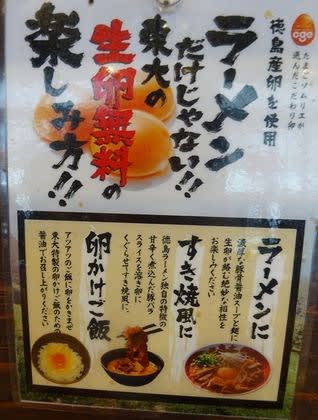 たまごソムリエが
選んだこだわり卵
徳島産卵を使用
ラーメン
だけじゃない!!
東大の
生卵無料の
楽しみ方!!
ラーメンに
濃厚な豚骨醤油スープと麺に
生卵が絡む絶妙な相性を
お楽しみください
すき焼風に
徳島ラーメン独自の特徴の
甘辛く煮込んだ豚バラ
スライスを溶き卵に
くぐらせてすき焼風に。
卵かけご飯
アツアツのご飯に卵をかきまぜ
東大特製の卵かけご飯のための
醤油でお召しあがりください